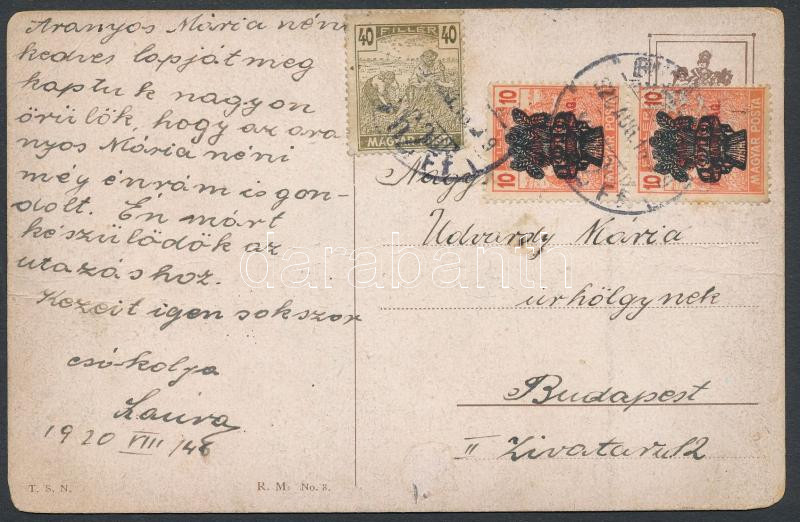 Aranyos Mária néni
kedves lapját meg
kaptuk nagyon
örülök, hogy az ara
nyos Mária néni
még énrám is gon-
dolt. Én márt
készülődök az
utazáshoz.
Kezeit igen sokszor
csókolja
Laura
1920 VIII
T. S. N. R. M. No. 8.
40 FILLÉR 40
MAGYAR
10 10 MAGYAR POSTA
10 10 MAGYAR POSTA
Nagys
Udvardy Mária
úrhölgynek
Budapest
II Zivatar u. 2
darabanth